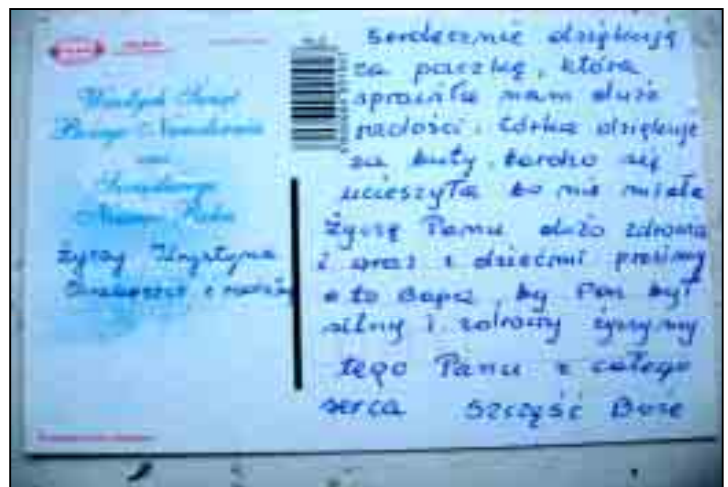 Wesołych Świąt
Bożego Narodzenia
oraz
Szczęśliwego
Nowego Roku
życzy Krystyna
z rodziną
Serdecznie dziękuję
za paczkę, która
sprawiła nam dużo
radości. Córka dziękuje
za buty, bardzo się
ucieszyła bo nie miała
Życzę Panu dużo zdrowia
i wraz z dziećmi prosimy
o to Boga, by Pan był
silny i zdrowy życzymy
tego Panu z całego
serca Szczęść Boże